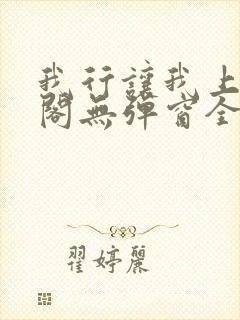 我行讓我上
閣無彈窗全
翟婷麗